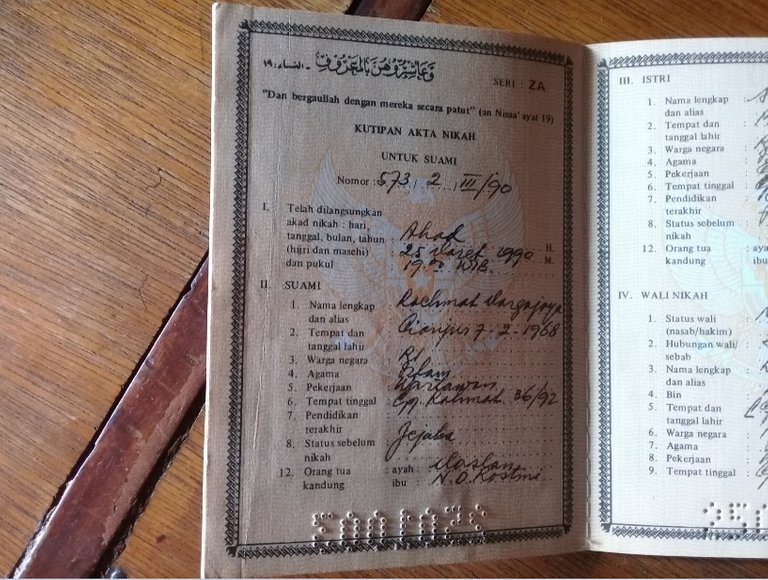 وَعَاشِرُوهُنَّ بِالْمَعْرُوفِ - النساء: ١٩
SERI : ZA
"Dan bergaullah dengan mereka secara patut" (an Nisaa' ayat 19)
KUTIPAN AKTA NIKAH
UNTUK SUAMI
Nomor : 573 / 2 / III/90
I. Telah dilangsungkan
akad nikah : hari,
tanggal, bulan, tahun : Ahad
(hijri dan masehi) : 25 Maret 1990 H.
dan pukul : WIB. M.
II. SUAMI
1. Nama lengkap : Rachmat
dan alias
2. Tempat dan : Cianjur 7-2-1968
tanggal lahir
3. Warga negara : RI
4. Agama : Islam
5. Pekerjaan :
6. Tempat tinggal : Gg. Rahmat 36/92
7. Pendidikan
terakhir :
8. Status sebelum : Jejaka
nikah
12. Orang tua : ayah :
kandung ibu : N.O. Kostini
III. ISTRI
1. Nama lengkap :
dan alias
2. Tempat dan :
tanggal lahir
3. Warga negara :
4. Agama :
5. Pekerjaan :
6. Tempat tinggal :
7. Pendidikan :
terakhir
8. Status sebelum :
nikah
12. Orang tua : aya
kandung ibu
IV. WALI NIKAH
1. Status wali :
(nasab/hakim)
2. Hubungan wali/ :
sebab
3. Nama lengkap :
dan alias
4. Bin :
5. Tempat dan :
tanggal lahir
6. Warga negara :
7. Agama :
8. Pekerjaan :
9. Tempat tinggal :